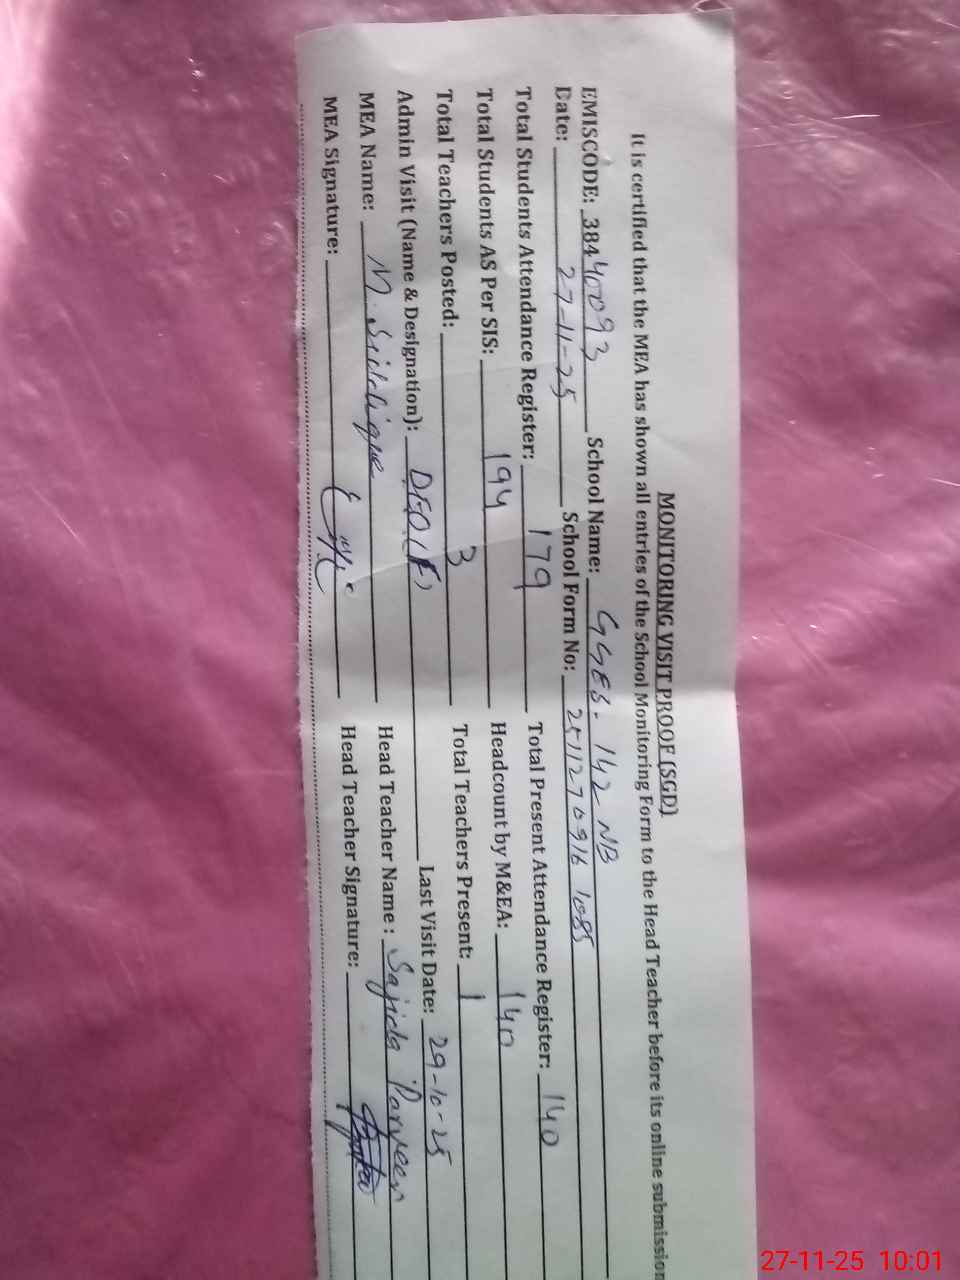 MONITORING VISIT PROOF (SGD)
It is certified that the MEA has shown all entries of the School Monitoring Form to the Head Teacher before its online submission
EMISCODE: 38440093 School Name: GGES-142 NB
Date: 27-11-25 School Form No: 2511270916 1085
Total Students Attendance Register: 179 Total Present Attendance Register: 140
Total Students AS Per SIS: 194 Headcount by M&EA: 140
Total Teachers Posted: 3 Total Teachers Present: 1
Admin Visit (Name & Designation): DEO(F) Last Visit Date: 29-10-25
MEA Name: M. Siddique Head Teacher Name : Sajida Parveen
MEA Signature: Head Teacher Signature:
27-11-25 10:01